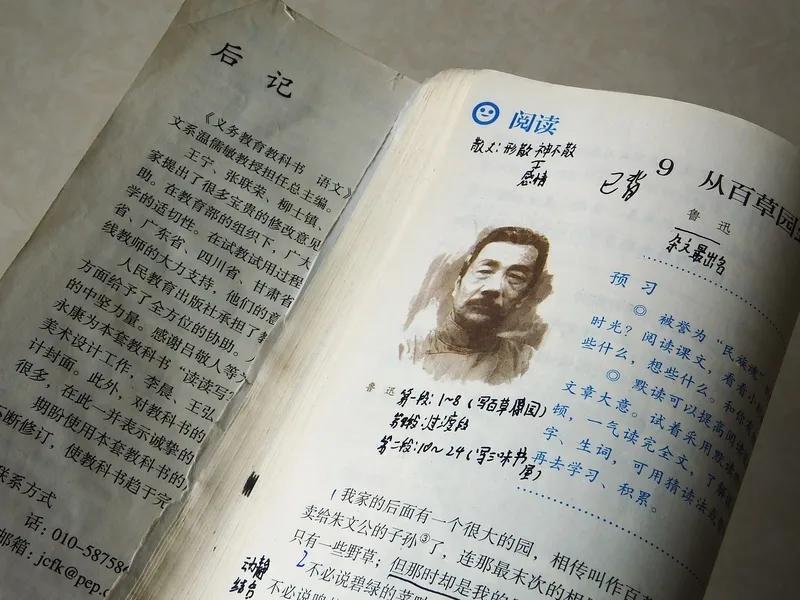 后 记
《义务教育教科书 语文》
文系温儒敏教授担任总主编。
王宁、张联荣、柳士镇、
家提出了很多宝贵的修改意见
助。在教育部的组织下,广大
学的适切性。在试教试用过程
省、广东省、四川省、甘肃省
线教师的大力支持,他们的意
人民教育出版社承担了教
方面给予了全方位的协助。
的中坚力量。感谢吕敬人等为
永康为本套教科书“读读写
美术设计工作,李晨、王弘
计封面。此外,对教科书的
很多,在此一并表示诚挚的
期盼使用本套教科书的
不断修订,使教科书趋于完
联系方式
话:010-58758
邮箱:jcfk@pep.c
阅读
散文:形散神不散
感情
已背
9 从百草园
鲁 迅
杂文最出名
预 习
◎ 被誉为“民族魂”
时光?阅读课文,看看小
些什么,想些什么。和你
◎ 默读可以提高阅读
文章大意。试着采用默读
顿,一气读完全文,了解
字、生词,可用猜读法
再去学习、积累。
鲁 迅
第一段:1~8(写百草园)
第9段:过渡段
第二段:10~24(写三味书屋)
1 我家的后面有一个很大的园,相传叫作百
卖给朱文公的子孙③了,连那最末次的相
只有一些野草;但那时却是我的
动静
结合
2 不必说碧绿的菜
不必说鸣